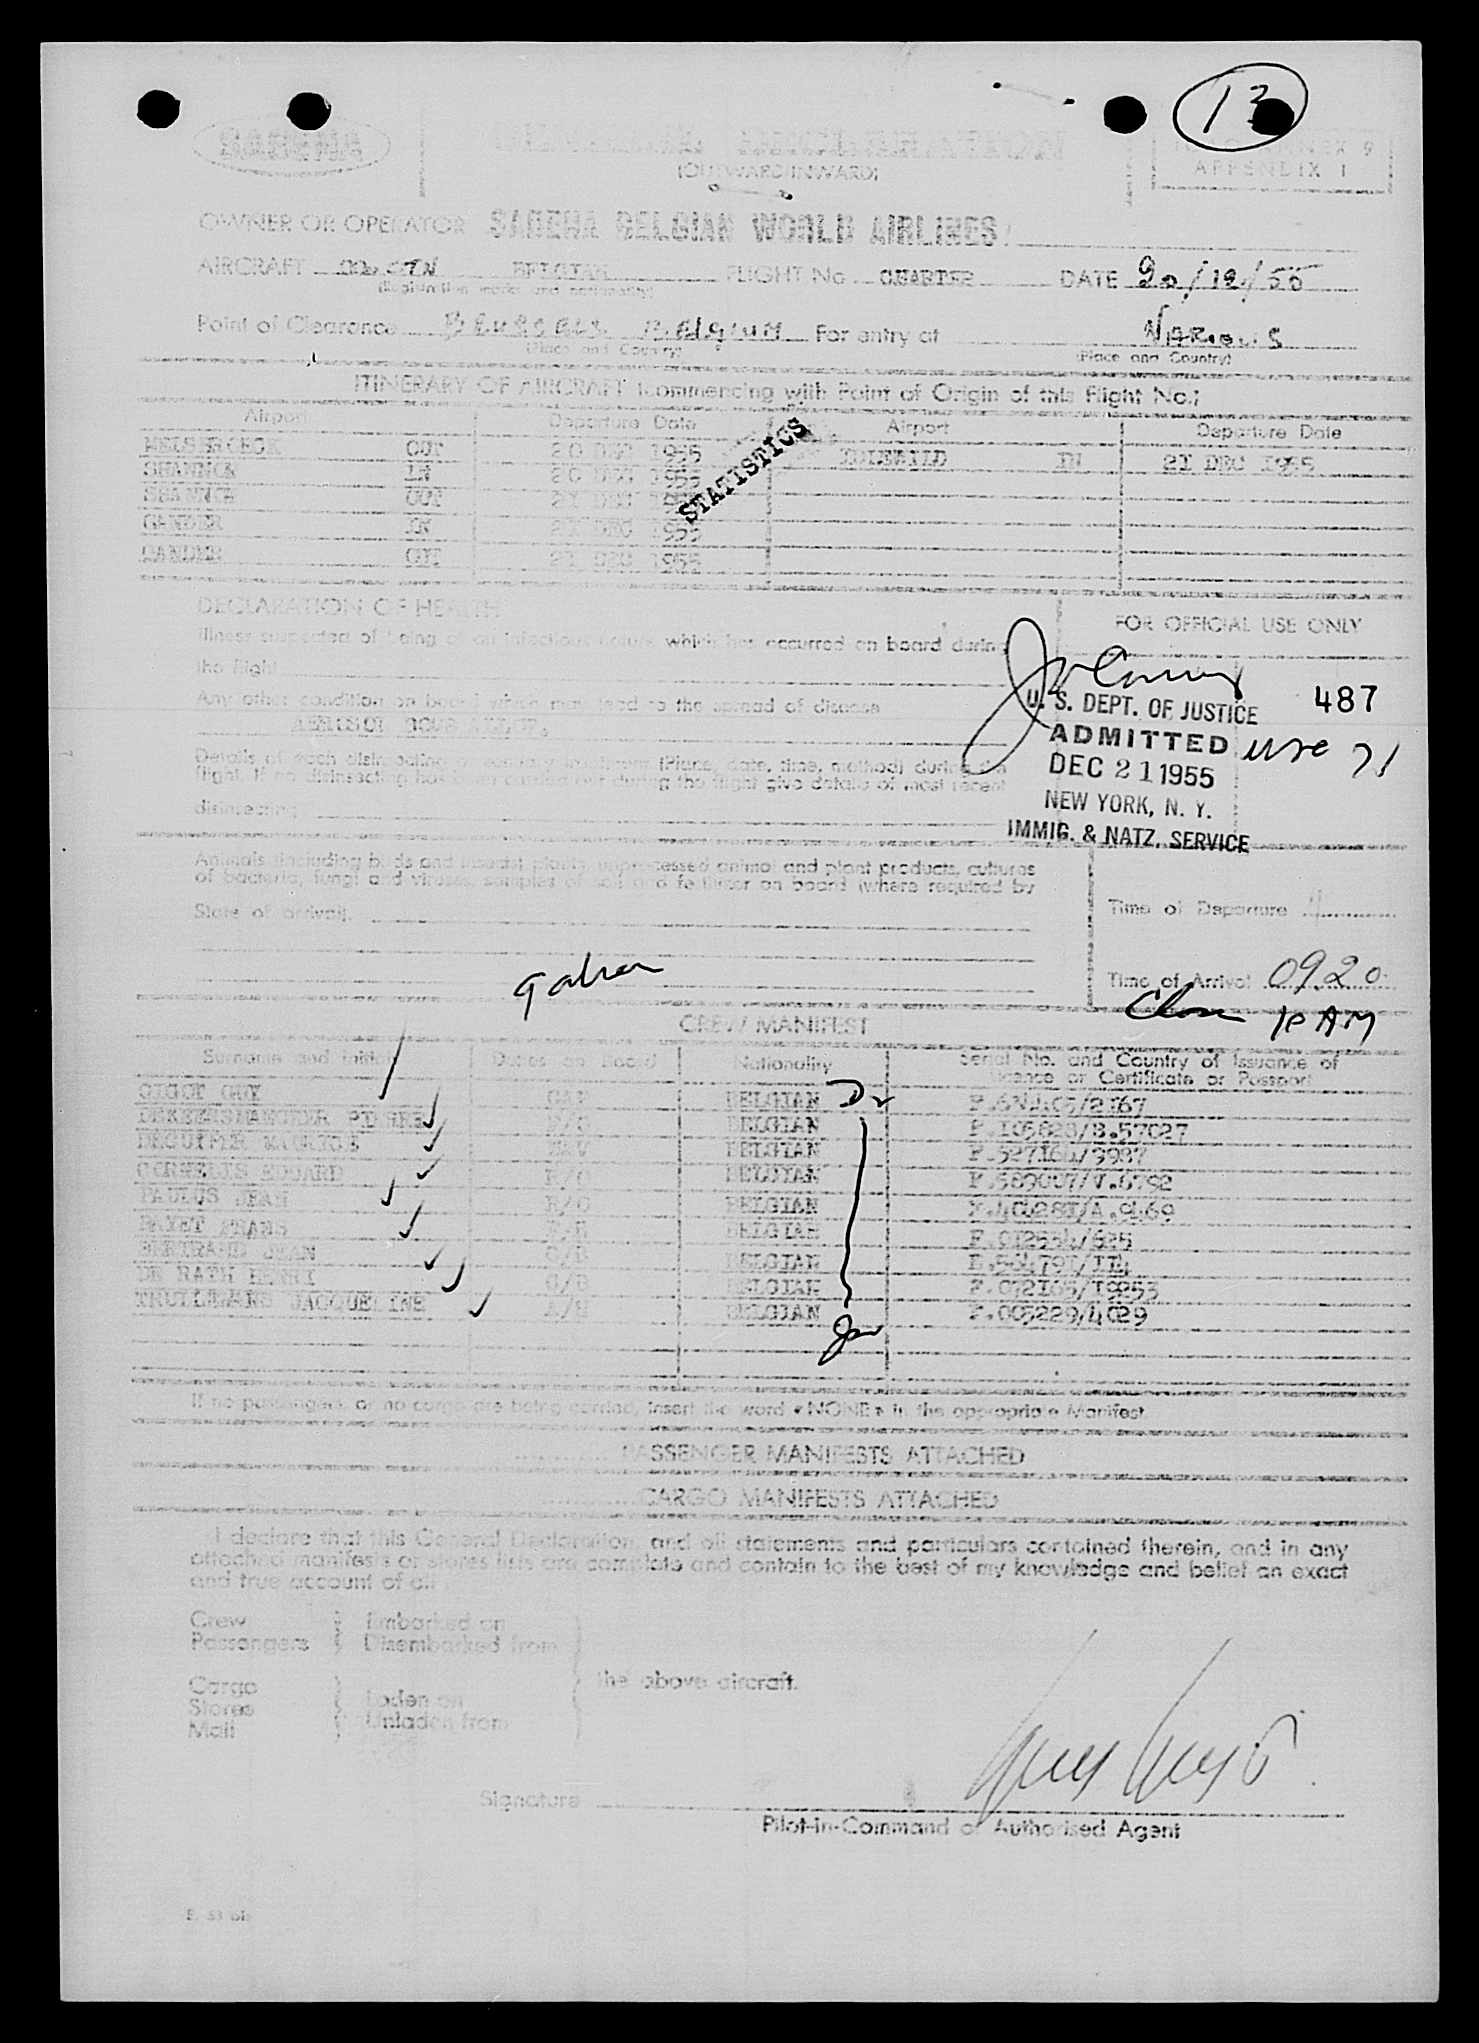 13
SABENA
GENERAL DECLARATION
(OUTWARD/INWARD)
ANNEX 9
APPENDIX 1
OWNER OR OPERATOR SABENA BELGIAN WORLD AIRLINES
AIRCRAFT BELGIAN FLIGHT No CHARTER DATE 20/12/55
(Registration marks and nationality)
Point of Clearance BRUSSELS BELGIUM For entry at VARIOUS
(Place and Country) (Place and Country)
ITINERARY OF AIRCRAFT (commencing with Point of Origin of this Flight No.)
Airport Departure Date Airport Departure Date
MELSBROECK OUT 20 DEC 1955 IDLEWILD IN 21 DEC 1955
SHANNON IN 20 DEC 1955
SHANNON OUT 21 DEC 1955
GANDER IN 21 DEC 1955
GANDER OUT 21 DEC 1955
STATISTICS
DECLARATION OF HEALTH
FOR OFFICIAL USE ONLY
Illness suspected of being of an infectious nature which has occurred on board during
the flight
Any other condition on board which may lead to the spread of disease
AEROSOL BOMB
Details of each disinsecting or sanitary treatment (Place, date, time, method) during the
flight. If no disinsecting has been carried out during the flight give details of most recent
disinsecting
487
U. S. DEPT. OF JUSTICE
ADMITTED
DEC 21 1955
NEW YORK, N. Y.
IMMIG. & NATZ. SERVICE
Animals (including birds and insects) plants, unprocessed animal and plant products, cultures
of bacteria, fungi and viruses, samples of soil and fertilizer on board (where required by
State of arrival).
Time of Departure
Time of Arrival 0920
Close 10 AM
CREW MANIFEST
Surname and initials Duties on Board Nationality Serial No. and Country of Issuance of
Licence or Certificate or Passport
GIGOT GUY CAP BELGIAN
PIERRE F/O BELGIAN
NAV BELGIAN
CORNELIS EDUARD R/O BELGIAN
PAULUS JEAN R/O BELGIAN
FRANS BELGIAN
BERTRAND JEAN BELGIAN
DE RATH HENRI BELGIAN
JACQUELINE BELGIAN P.005229/4029
If no passengers or no cargo are being carried, insert the word «NONE» in the appropriate Manifest
PASSENGER MANIFESTS ATTACHED
CARGO MANIFESTS ATTACHED
I declare that this General Declaration, and all statements and particulars contained therein, and in any
attached manifests or stores lists are complete and contain to the best of my knowledge and belief an exact
and true account of all
Crew Embarked on
Passengers Disembarked from
the above aircraft.
Cargo
Stores Laden on
Mail Unladen from
Signature
Pilot-in-Command or Authorised Agent